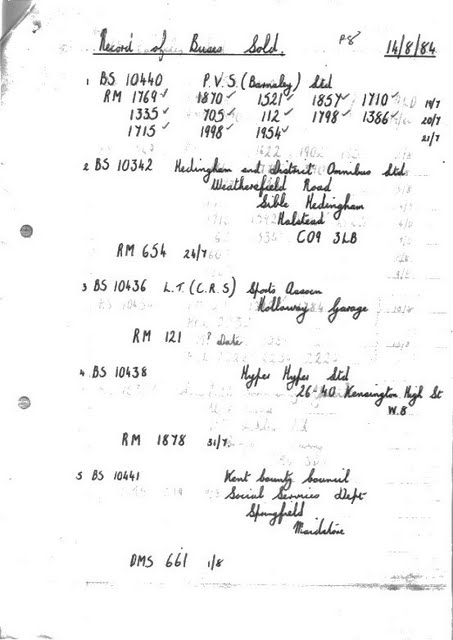 Record of Buses Sold. P8 14/8/84
1 BS 10440 P.V.S. (Barnsley) Ltd
RM 1769✓ 1870✓ 1521✓ 1857✓ 1710✓ 19/7
1335✓ 705✓ 112✓ 1798✓ 1386✓ 20/7
1715 1998✓ 1954✓ 21/7
2 BS 10342 Hedingham and District Omnibus Ltd
Weathersfield Road
Sible Hedingham
Halstead
CO9 3LB
RM 654 24/7
3 BS 10436 L.T. (C.R.S) Sports Assocn
Holloway Garage
RM 121 ? Date
4 BS 10438 Hyper Hyper Ltd
26-40 Kensington High St
W.8
RM 1878 31/7
5 BS 10441 Kent County Council
Social Services Dept
Springfield
Maidstone
DMS 661 1/8